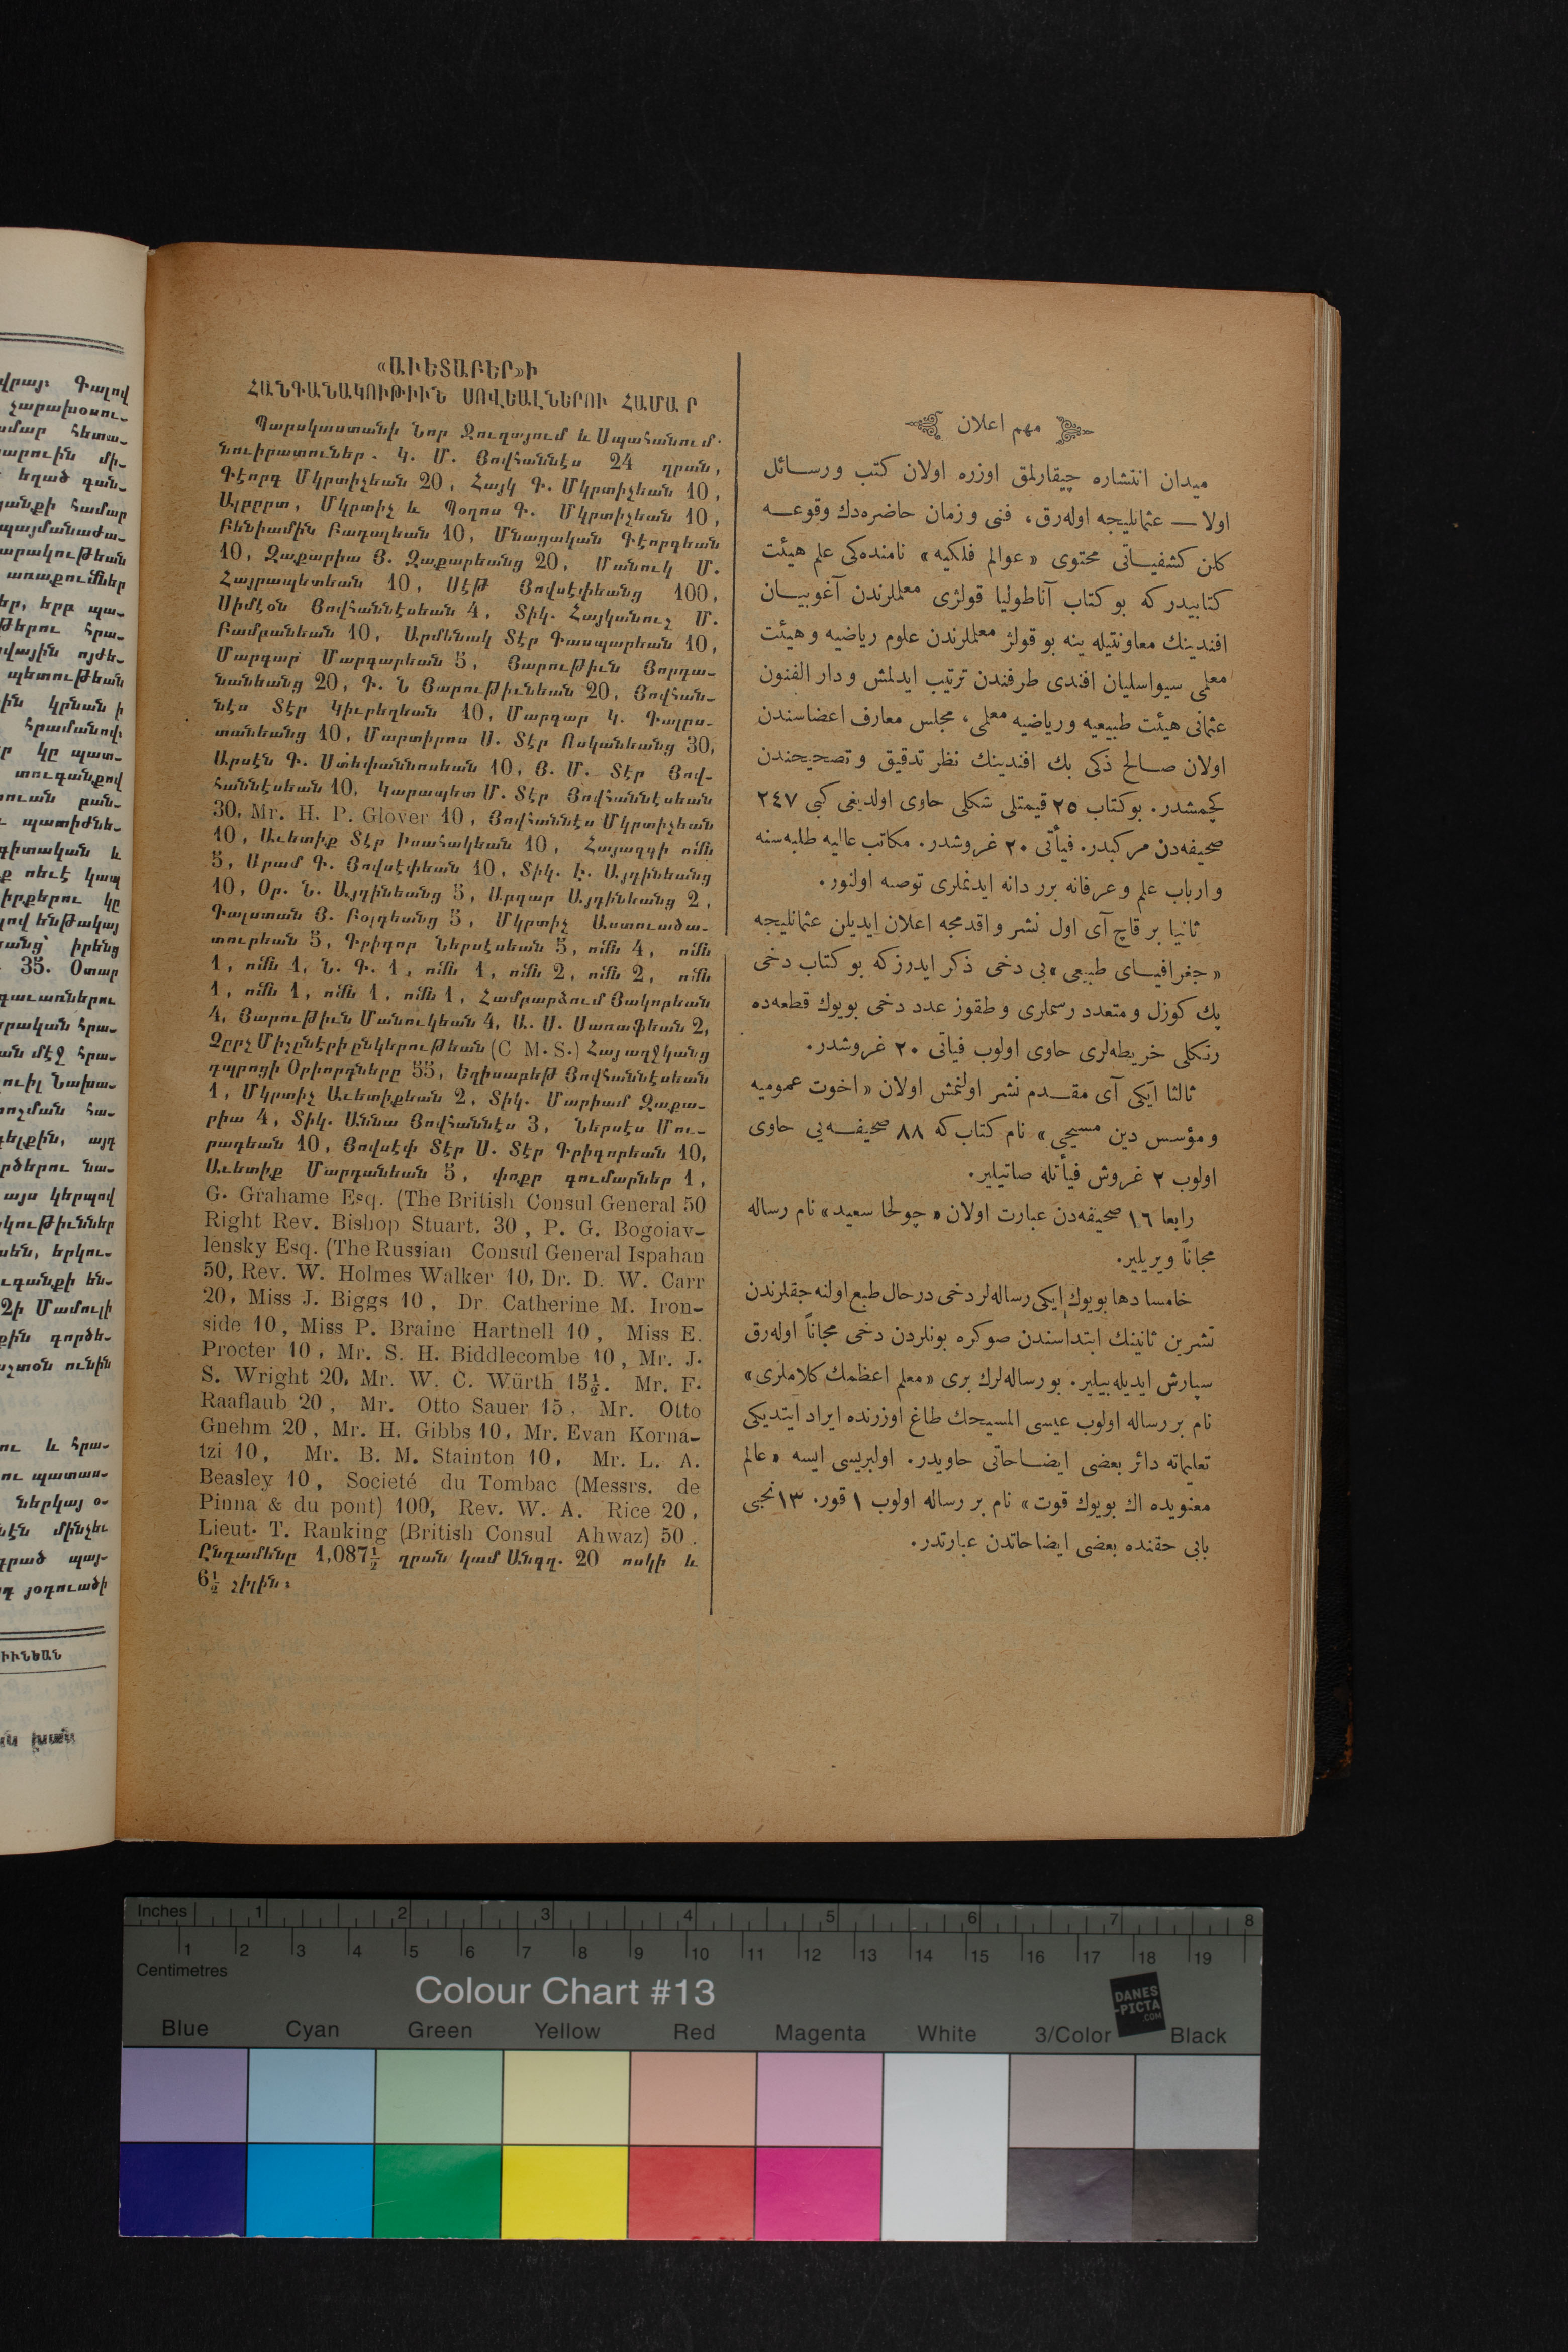 «ԱՒԵՏԱԲԵՐ»Ի
ՀԱՆԳԱՆԱԿՈՒԹԻՒՆ ՍՈՎԵԱԼՆԵՐՈՒ ՀԱՄԱՐ
Պարսկաստանի Նոր Ջուղայում և Սպահանում.
նուիրատուներ. Կ. Մ. Յովհաննէս 24 ղրան,
Գէորգ Մկրտիչեան 20, Հայկ Գ. Մկրտիչեան 10,
Ալբըրտ, Մկրտիչ և Պօղոս Գ. Մկրտիչեան 10,
Բենիամին Բադալեան 10, Մնացական Գէորգեան
10, Զաքարիա Յ. Զաքարեանց 20, Մանուկ Մ.
Հայրապետեան 10, Սէթ Յովսէփեանց 100,
Սիմէօն Յովհաննէսեան 4, Տիկ. Հայկանուշ Մ.
Բամրանեան 10, Արմենակ Տէր Գասպարեան 10,
Մարգար Մարգարեան 5, Յարութիւն Յորդա-
նանեանց 20, Գ. Ն Յարութիւնեան 20, Յովհան-
նէս Տէր Կիւրեղեան 10, Մարգար Կ. Գալըս-
տանեանց 10, Մարտիրոս Ա. Տէր Ոսկանեանց 30,
Արսէն Գ. Ստեփաննոսեան 10, Յ. Մ. Տէր Յով-
հաննէսեան 10, Կարապետ Մ. Տէր Յովհաննէսեան
30, Mr. H. P. Glover 10, Յովհաննէս Մկրտիչեան
10, Աւետիք Տէր Իսահակեան 10, Հայազգի ոմն
5, Արամ Գ. Յովսէփեան 10, Տիկ. Է. Այդինեանց
10, Օր. Ն. Այդինեանց 5, Արդար Այդինեանց 2,
Գալստան Յ. Բօլդեանց 5, Մկրտիչ Աստուածա-
տուրեան 5, Գրիգոր Ներսէսեան 5, ոմն 4, ոմն
1, ոմն 1, Ն. Գ. 1, ոմն 1, ոմն 2, ոմն 2, ոմն
1, ոմն 1, ոմն 1, ոմն 1, Համբարձում Յակոբեան
4, Յարութիւն Մանուկեան 4, Ա. Ս. Սառաֆեան 2,
Չըրչ Միշընէրի ընկերութեան (C M. S.) Հայ աղջկանց
դպրոցի Օրիորդները 55, Եղիսաբեթ Յովհաննէսեան
1, Մկրտիչ Աւետիքեան 2, Տիկ. Մարիամ Զաքա-
րիա 4, Տիկ. Աննա Յովհաննէս 3, Ներսէս Մու-
րադեան 10, Յովսէփ Տէր Ս. Տէր Գրիգորեան 10,
Աւետիք Մարդանեան 5, փոքր գումարներ 1,
G. Grahame Esq. (The British Consul General 50
Right Rev. Bishop Stuart. 30, P. G. Bogoiav-
lensky Esq. (The Russian Consul General Ispahan
50, Rev. W. Holmes Walker 10, Dr. D. W. Carr
20, Miss J. Biggs 10, Dr Catherine M. Iron-
side 10, Miss P. Braine Hartnell 10, Miss E.
Procter 10, Mr. S. H. Biddlecombe 10, Mr. J.
S. Wright 20, Mr. W. C. Würth 15½. Mr. F.
Raaflaub 20, Mr. Otto Sauer 15, Mr. Otto
Gnehm 20, Mr. H. Gibbs 10, Mr. Evan Korna-
tzi 10, Mr. B. M. Stainton 10, Mr. L. A.
Beasley 10, Societé du Tombac (Messrs. de
Pinna & du pont) 100, Rev. W. A. Rice 20,
Lieut. T. Ranking (British Consul Ahwaz) 50.
Ընդամենը 1,087½ ղրան կամ Անգղ. 20 ոսկի և
6½ շիլին։
مهم اعلان
میدان انتشاره چیقارلمق اوزره اولان کتب ورسائل
اولا — عثمانلیجه اوله‌رق، فنی و زمان حاضره‌دك وقوعه
کلن کشفیاتی محتوی «عوالم فلکیه» نامنده‌کی علم هیئت
کتابیدرکه بو کتاب آناطولیا قولژی معلملرندن آغوبیان
افندینك معاونتیله ینه بو قولژ معلملرندن علوم ریاضیه و هیئت
معلمی سیواسلیان افندی طرفندن ترتیب ایدلمش و دار الفنون
عثمانی هیئت طبیعیه و ریاضیه معلمی، مجلس معارف اعضاسندن
اولان صالح ذکی بك افندینك نظر تدقیق و تصحیحندن
کچمشدر. بوکتاب ٢٥ قیمتلی شکلی حاوی اولدیغی کبی ٢٤٧
صحیفه‌دن مرکبدر. فیأتی ٢٠ غروشدر. مکاتب عالیه طلبه‌سنه
و ارباب علم و عرفانه برر دانه ایدنملری توصیه اولنور.
ثانیا بر قاچ آی اول نشر و اقدمجه اعلان ایدیلن عثمانلیجه
«جغرافیای طبیعی» یی دخی ذکر ایدرزکه بو کتاب دخی
پك کوزل و متعدد رسملری و طقوز عدد دخی بویوك قطعه‌ده
رنکلی خریطه‌لری حاوی اولوب فیاتی ٢٠ غروشدر.
ثالثا ایکی آی مقدم نشر اولنمش اولان «اخوت عمومیه
و مؤسس دین مسیحی» نام کتاب که ٨٨ صحیفه‌یی حاوی
اولوب ٢ غروش فیأتله صاتیلیر.
رابعا ١٦ صحیفه‌دن عبارت اولان «چولحا سعید» نام رساله
مجاناً ویریلیر.
خامسا دها بویوك ایکی رساله‌لر دخی درحال طبع اولنه‌جقلرندن
تشرین ثانینك ابتداسندن صوکره بونلردن دخی مجاناً اوله‌رق
سپارش ایدیله‌بیلیر. بو رساله‌لرك بری «معلم اعظمك کلاملری»
نام بر رساله اولوب عیسی المسیحك طاغ اوزرنده ایراد ایتدیکی
تعلیماته دائر بعضی ایضاحاتی حاویدر. اولبریسی ایسه «عالم
معنویده اك بویوك قوت» نام بر رساله اولوب ١ قور. ١٣نجی
بابی حقنده بعضی ایضاحاتدن عبارتدر.
Inches 1 2 3 4 5 6 7 8
1 2 3 4 5 6 7 8 9 10 11 12 13 14 15 16 17 18 19
Centimetres
Colour Chart #13
DANES
-PICTA
.COM
Blue Cyan Green Yellow Red Magenta White 3/Color Black